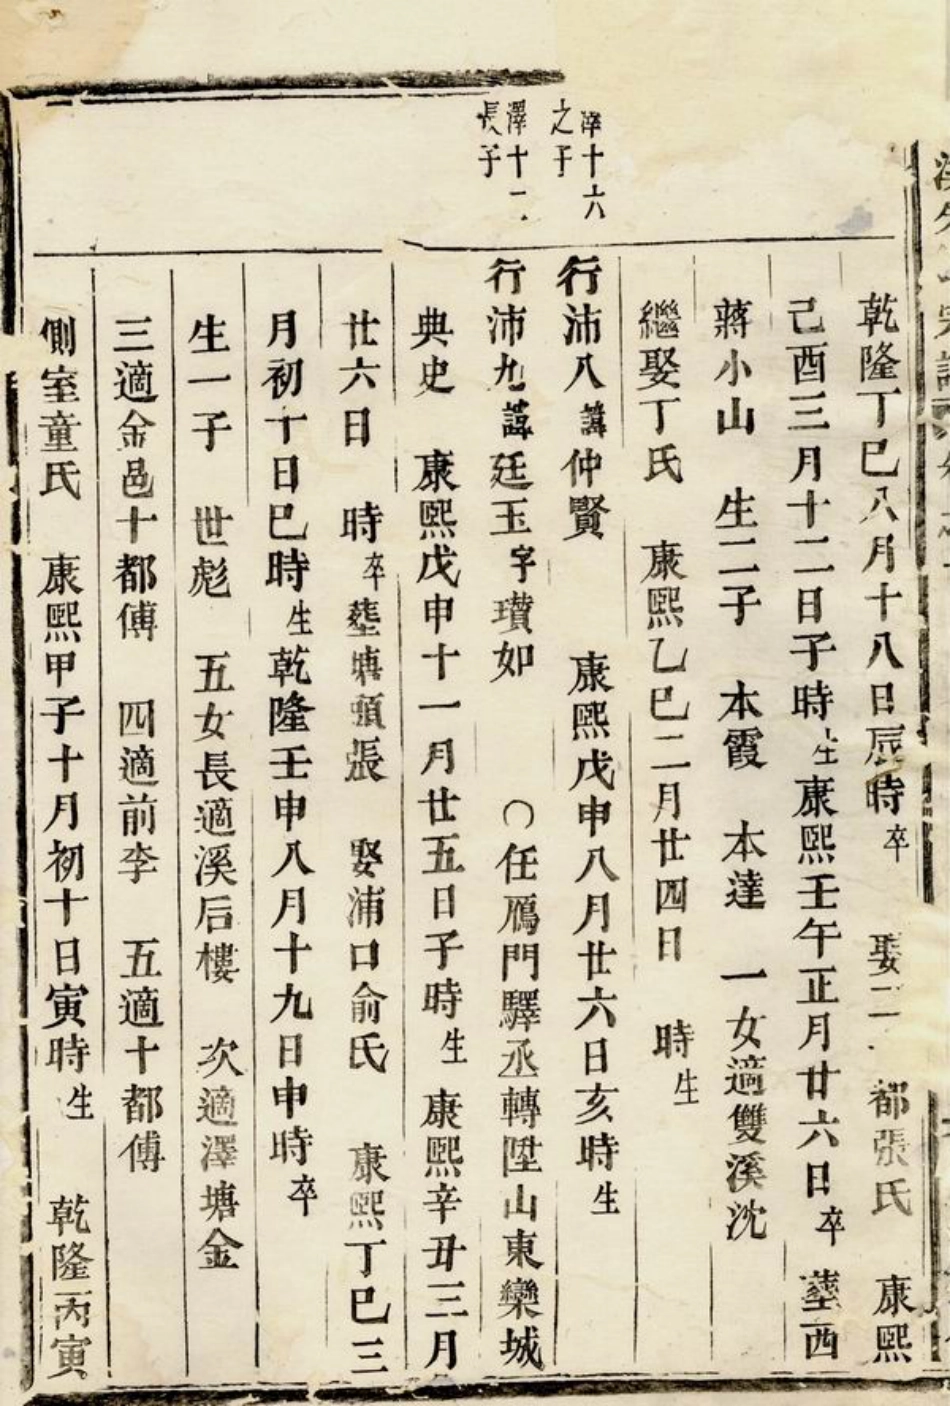 乾隆丁巳八月十八日辰時卒 娶二 都張氏 康熙
己酉三月十二日子時生康熙壬午正月廿六日卒 塟西
蔣小山 生二子 本霞 本達 一女適雙溪沈
繼娶丁氏 康熙乙巳二月廿四日 時生
澤十六
之子
行沛八諱仲賢 康熙戊申八月廿六日亥時生
澤十二
長子
行沛九諱廷玉字瓚如 〇任鴈門驛丞轉陞山東欒城
典史 康熙戊申十一月廿五日子時生 康熙辛丑三月
廿六日 時卒塟塘頭張 娶浦口俞氏 康熙丁巳三
月初十日巳時生乾隆壬申八月十九日申時卒
生一子 世彪 五女長適溪后樓 次適澤塘金
三適金邑十都傅 四適前李 五適十都傅
側室童氏 康熙甲子十月初十日寅時生 乾隆丙寅